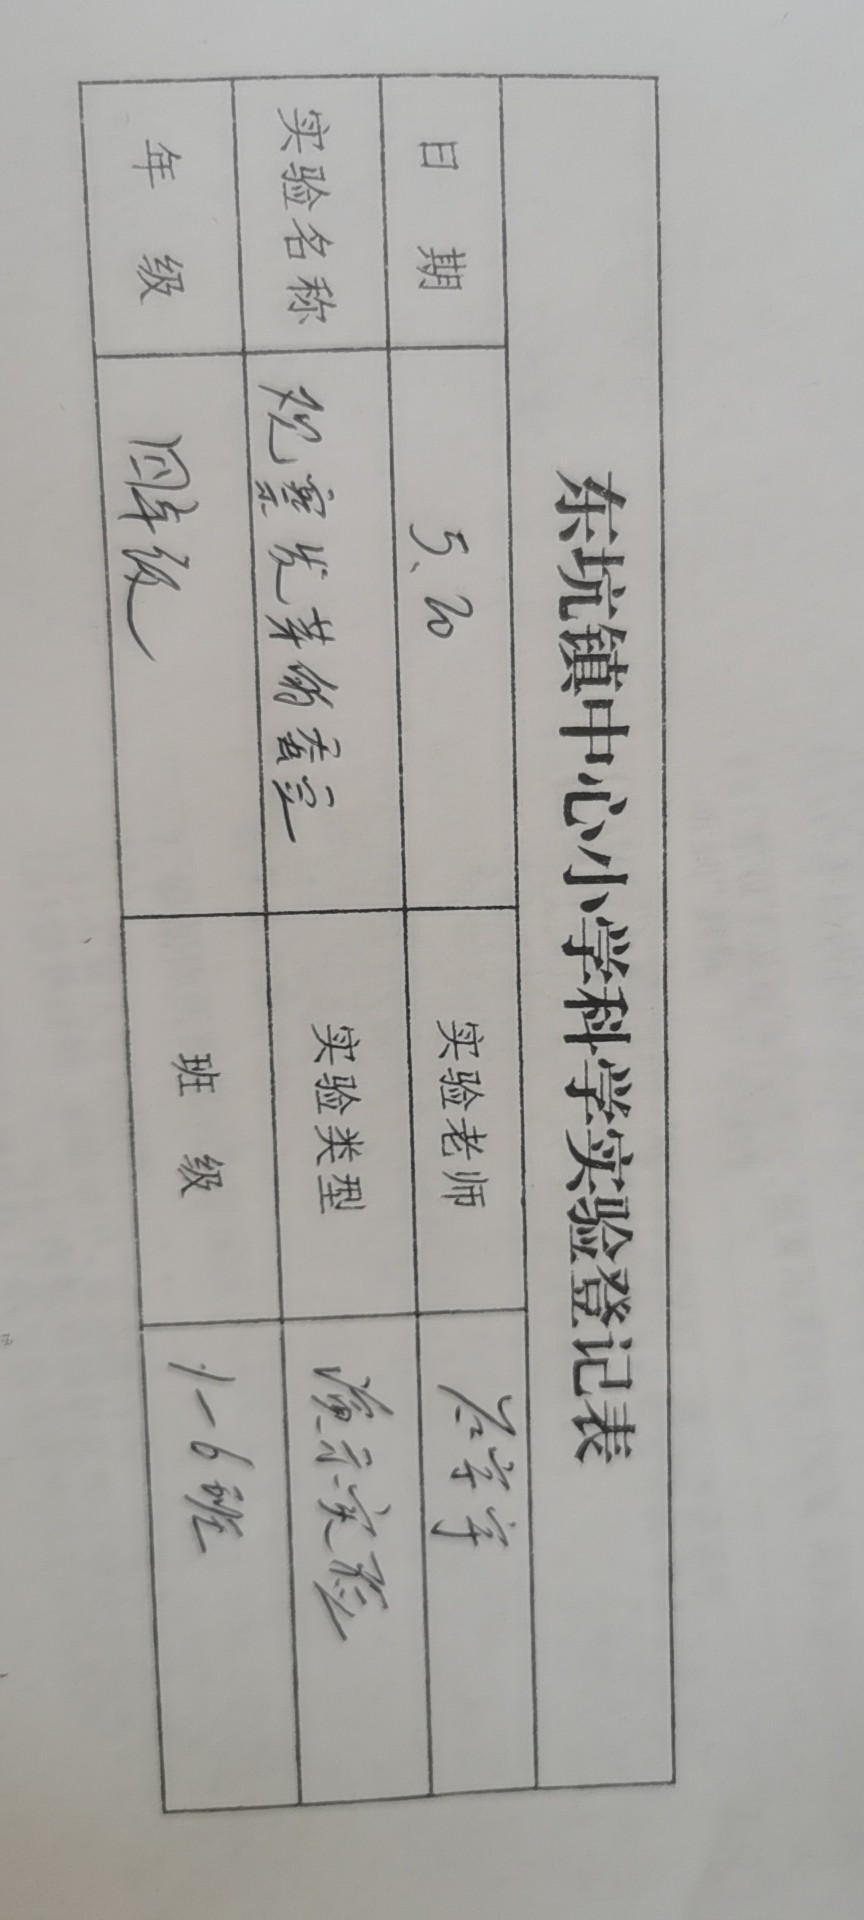 东坑镇中心小学科学实验登记表
日 期 5、20 实验老师
实验名称 观察发芽的蚕豆 实验类型 演示实验
年 级 四年级 班 级 1-6班